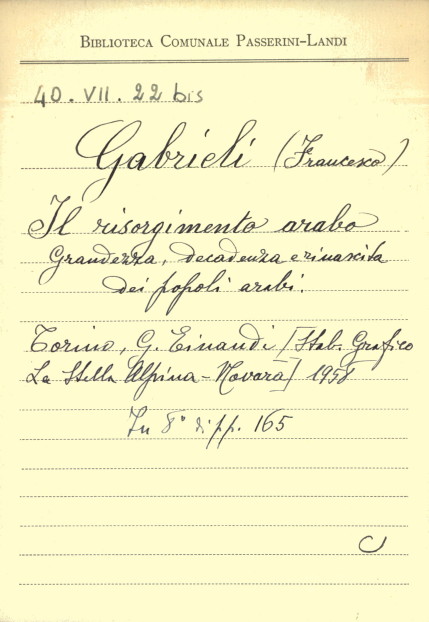 BIBLIOTECA COMUNALE PASSERINI-LANDI
40. VII. 22 bis
Gabrieli (Francesco)
Il risorgimento arabo
Grandezza, decadenza e rinascita
dei popoli arabi.
Torino, G. Einaudi [Stab. Grafico
La Stella Alpina - Novara] 1958
In 8° di pp. 165
C